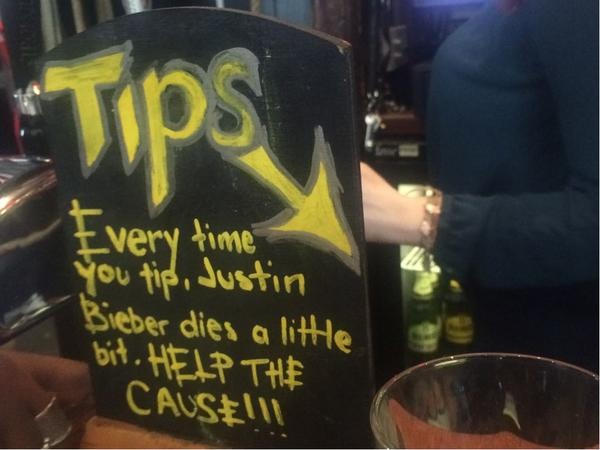 Tips
Every time
you tip, Justin
Bieber dies a little
bit. HELP THE
CAUSE!!!